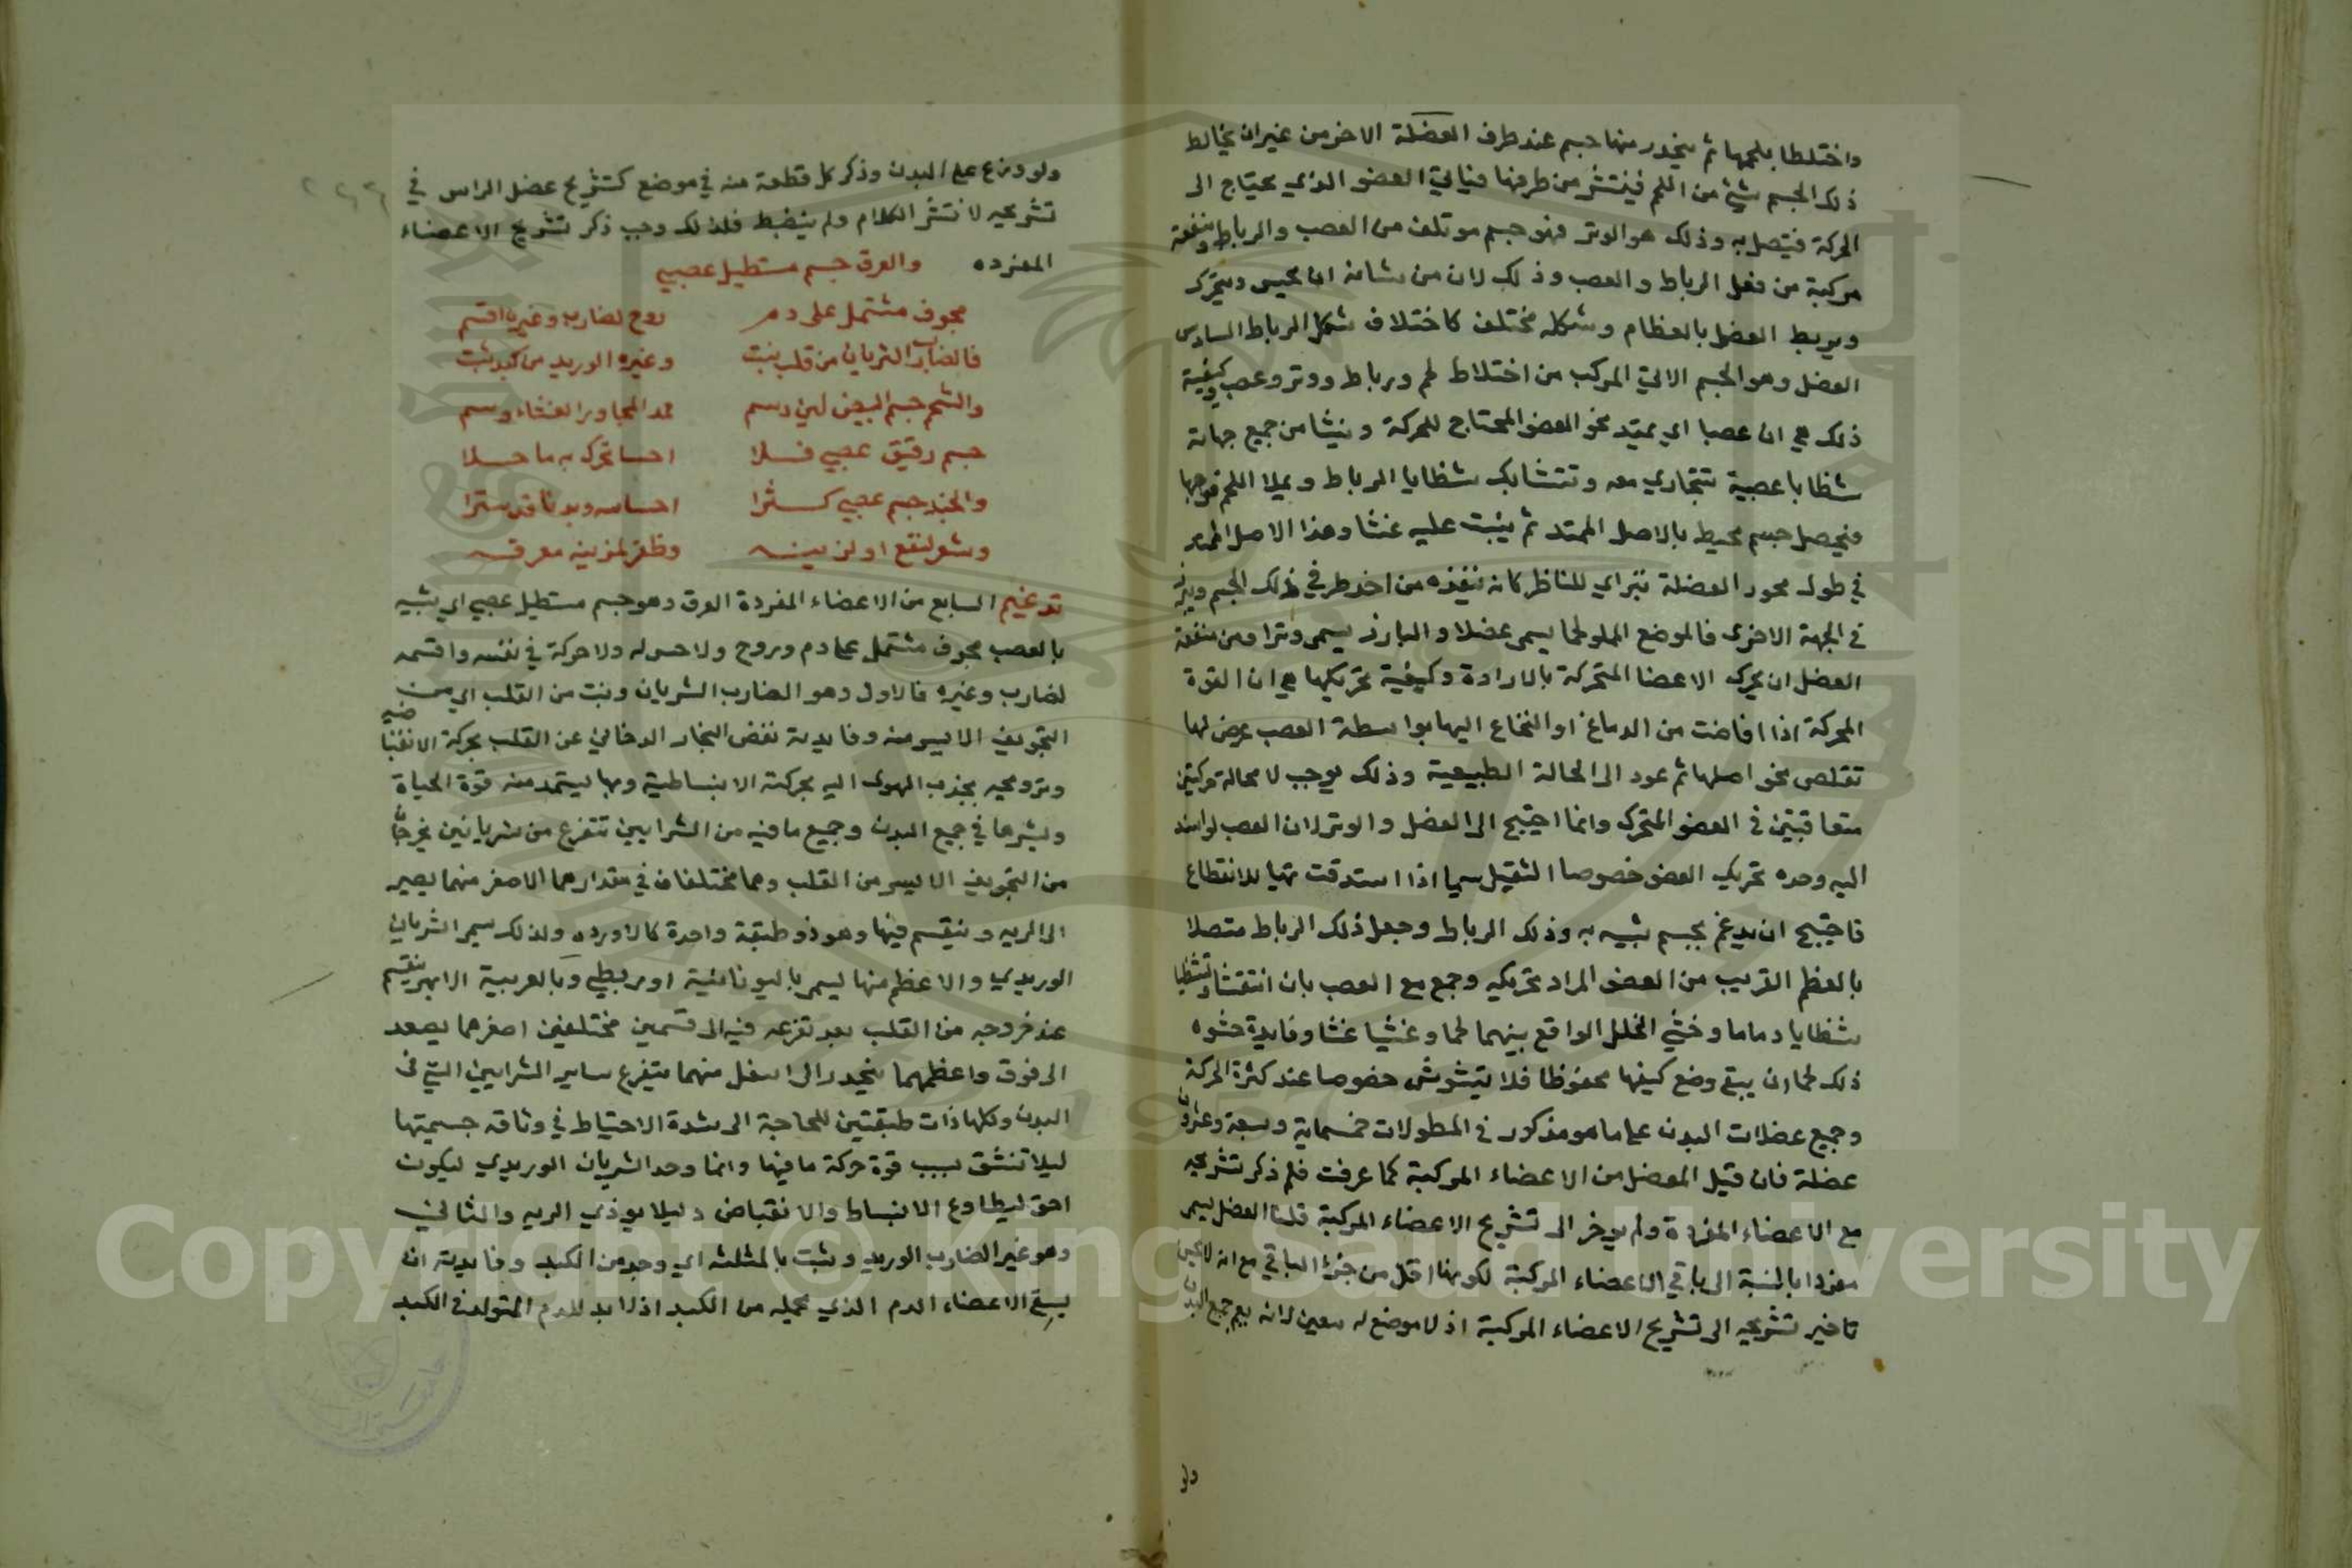 واختلطا بلحمها ثم ينحدر منها جسم عند طرف العضلة الاخر من غير ان يخالط
ذلك الجسم شيئ من اللحم فينتشر من طرفها فياتي العضو الذي يحتاج الى
الحركة فيتصل به وذلك هو الوتر فهو جسم موتلف من العصب والرباط ومنفعته
مركبة من فعل الرباط والعصب وذلك لان من شانه ان يحس ويتحرك
ويربط العضل بالعظام وشكله مختلف كاختلاف شكل الرباط السادس
العضل وهو الجسم الالي المركب من اختلاط لحم ورباط ووتر وعصب وكيفية
ذلك هي ان عصبا اي يمتد نحو العضو المحتاج للحركة وينشا من جميع جهاته
شظايا عصبية تتجاري معه وتتشابك شظايا الرباط ويملا اللحم فرجها
فيحصل جسم محيط بالاصل الممتد ثم ينبت عليه غشا وهذا الاصل الممتد
في طول محور العضلة يتراي للناظر كانه ينفذه من احد طرفي ذلك الجسم ويبرز
في الجهة الاخرى فالموضع المملو لحما يسمى عضلا والبارز يسمى وترا ومن منفعة
العضل ان يحرك الاعضا المتحركة بالارادة وكيفية تحريكها هي ان القوة
المحركة اذا افاضت من الدماغ او النخاع اليها بواسطة العصب عرض لها
تقلص نحو اصلها ثم عود الى الحالة الطبيعية وذلك يوجب لا محالة حركتين
متعاقبتين في العضو المتحرك وانما احتيج الى العضل والوتر لان العصب لو اسند
اليه وحده تحريك العضو خصوصا الثقيل سيما اذا استدقت تهيا للانقطاع
فاحتيج ان يدعم بجسم شبيه به وذلك الرباط وجعل ذلك الرباط متصلا
بالعظم القريب من العضو المراد تحريكه وجمع مع العصب بان انتقشا وتشظيا
شظايا دماما وحشي الخلل الواقع بينهما لحما وغشيا غشا وفايدة حشوه
ذلك لحما ان يبقى وضع كيفها محفوظا فلا يتشوش خصوصا عند كثرة الحركة
وجميع عضلات البدن على ما هو مذكور في المطولات خمسماية وسبعة وعشرون
عضلة فان قيل العضل من الاعضاء المركبة كما عرفت فلم ذكر تشريحه
مع الاعضاء المفردة ولم يوخر الى تشريح الاعضاء المركبة قلنا العضل يسمى
مفردا بالنسبة الى باقي الاعضاء المركبة لكونها اقل من جزئه الباقي مع انه لا يمكن
تاخير تشريحه الى تشريح الاعضاء المركبة اذ لا موضع له معين لانه يعم جميع البدن
ولو
ولو وزع على البدن وذكر كل قطعة منه في موضع كتشريح عضل الراس في
تشريحه لانتشر الكلام ولم ينضبط فلذلك وجب ذكر تشريح الاعضاء
المفرده والعرق جسم مستطيل عصبي
مجوف مشتمل على دم روح لضارب وغيره اقسم
فالضارب الشريان من قلب ينبت وغيره الوريد من كبد ثبت
والشحم جسم ابيض لين دسم
جسم رقيق عصبي احسا تحرك به ما حسلا
والجلد جسم عصبي كسترا احساسه وبدنا قد سترا
وشعر لنفع او لزينه وظفر لمزينه معرفه
السابع من الاعضاء المفردة العرق وهو جسم مستطيل عصبي اي يشبه
بالعصب مجوف مشتمل على دم وروح ولا حس له ولا حركة في نفسه واقسمه
لضارب وغيره فالاول وهو الضارب الشريان وينبت من القلب اي من
التجويف الايسر منه وفايدته نفض البخار الدخاني عن القلب بحركة الانقباضية
وترويحه بجذب الهوى اليه بحركته الانبساطية وبها يستمد منه قوة الحياة
وينشرها في جميع البدن وجميع ما فيه من الشرايين تتفرع من شريانين يخرجان
من التجويف الايسر من القلب وهما مختلفان في مقدارهما الاصغر منهما يصير
الى الريه وينقسم فيها وهو ذو طبقة واحدة كالاورده ولذلك سمى الشريان
الوريدي والاعظم منها يسمى باليونانية اوربطي وبالعربية الابهر ينقسم
عند خروجه من القلب بعد تفرعه فيه الى قسمين مختلفين اصغرهما يصعد
الى فوق واعظمهما ينحدر الى اسفل منهما يتفرع ساير الشرايين التي في
البدن وكلها ذات طبقتين للحاجة الى شدة الاحتياط في وثاقه جسميتها
ليلا تنشق بسبب قوة حركة ما فيها وانما وحد الشريان الوريدي ليكون
احق ليطاوع الانبساط والانقباض وليلا يوذي الريه والثاني
وهو غير الضارب الوريد وثبت بالمثلثه اي وجد من الكبد وفايدته ان
يسقي الاعضاء الدم الذي يحمله من الكبد اذ لا بد للدم المتولد في الكبد
Copyright © King Saud University
1957